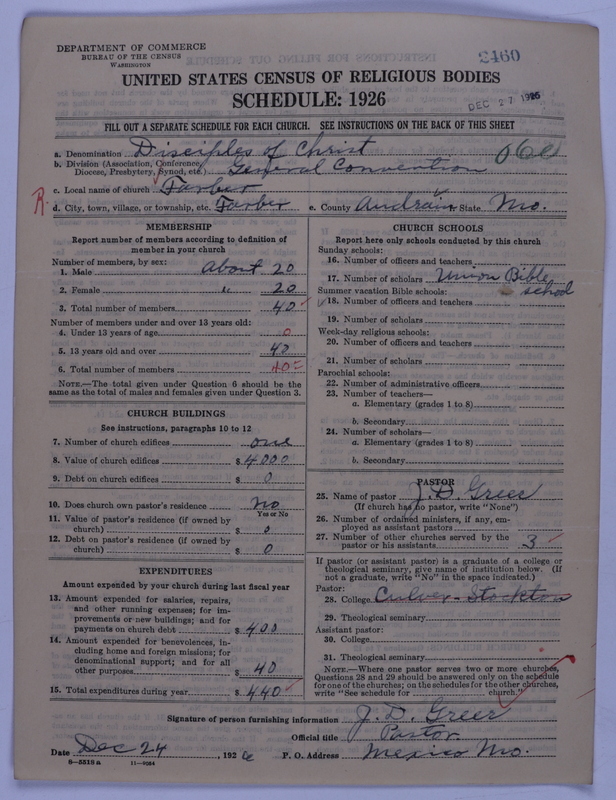 DEPARTMENT OF COMMERCE
BUREAU OF THE CENSUS
WASHINGTON
2460
UNITED STATES CENSUS OF RELIGIOUS BODIES
SCHEDULE: 1926
DEC 27 1926
FILL OUT A SEPARATE SCHEDULE FOR EACH CHURCH. SEE INSTRUCTIONS ON THE BACK OF THIS SHEET
a. Denomination Disciples of Christ
b. Division (Association, Conference, Diocese, Presbytery, Synod, etc.) General Convention
c. Local name of church Farber
R. d. City, town, village, or township, etc. Farber e. County Audrain State Mo.
MEMBERSHIP
Report number of members according to definition of member in your church
Number of members, by sex:
1. Male About 20
2. Female " 20
3. Total number of members 40
Number of members under and over 13 years old:
4. Under 13 years of age 0
5. 13 years old and over 40
6. Total number of members 40
NOTE.—The total given under Question 6 should be the same as the total of males and females given under Question 3.
CHURCH BUILDINGS
See instructions, paragraphs 10 to 12
7. Number of church edifices one
8. Value of church edifices $ 4000
9. Debt on church edifices $ 0
10. Does church own pastor's residence? No
Yes or No
11. Value of pastor's residence (if owned by church) $ 0
12. Debt on pastor's residence (if owned by church) $ 0
EXPENDITURES
Amount expended by your church during last fiscal year
13. Amount expended for salaries, repairs, and other running expenses; for improvements or new buildings; and for payments on church debt $ 400
14. Amount expended for benevolences, including home and foreign missions; for denominational support; and for all other purposes $ 40
15. Total expenditures during year $ 440
CHURCH SCHOOLS
Report here only schools conducted by this church
Sunday schools:
16. Number of officers and teachers
17. Number of scholars Union Bible school
Summer vacation Bible schools:
18. Number of officers and teachers
19. Number of scholars
Week-day religious schools:
20. Number of officers and teachers
21. Number of scholars
Parochial schools:
22. Number of administrative officers
23. Number of teachers—
a. Elementary (grades 1 to 8)
b. Secondary
24. Number of scholars—
a. Elementary (grades 1 to 8)
b. Secondary
PASTOR
25. Name of pastor J. D. Greer
(If church has no pastor, write "None")
26. Number of ordained ministers, if any, employed as assistant pastors
27. Number of other churches served by the pastor or his assistants 3
If pastor (or assistant pastor) is a graduate of a college or theological seminary, give name of institution below. (If not a graduate, write "No" in the space indicated.)
Pastor:
28. College Culver-Stockton
29. Theological seminary
Assistant pastor:
30. College
31. Theological seminary
NOTE.—Where one pastor serves two or more churches, Questions 28 and 29 should be answered only on the schedule for one of the churches; on the schedules for the other churches, write "See schedule for church."
Signature of person furnishing information J. D. Greer
Official title Pastor
Date Dec 24, 1926 P. O. Address Mexico Mo.
8—5518a 11—9064